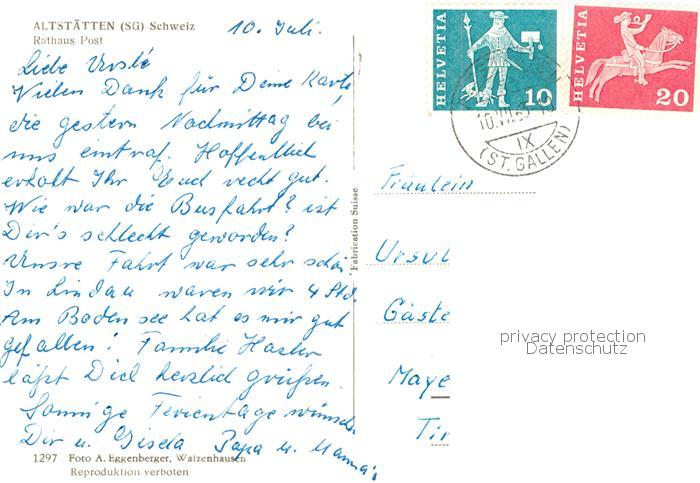 ALTSTÄTTEN (SG) Schweiz
Rathaus Post
10. Juli.
Liebe Urslé
Vielen Dank für Deine Karte,
die gestern Nachmittag bei
uns eintraf. Hoffentlich
erholt Ihr Euch recht gut.
Wie war die Busfahrt? ist
Dir's schlecht geworden?
Unsre Fahrt war sehr schön.
In Lindau waren wir 4 Std.
Am Boden see hat es mir gut
gefallen! Familie Hasler
läßt Dich herzlich grüßen.
Sonnige Ferientage wünschen
Dir u. Gisela Papa u. Mama
1297 Foto A. Eggenberger, Walzenhausen
Reproduktion verboten
Fabrication Suisse
HELVETIA
10
HELVETIA
20
10.VII.
IX
(ST. GALLEN)
Fräulein
Ursul
Gäste
Maye
Tir
privacy protection
Datenschutz